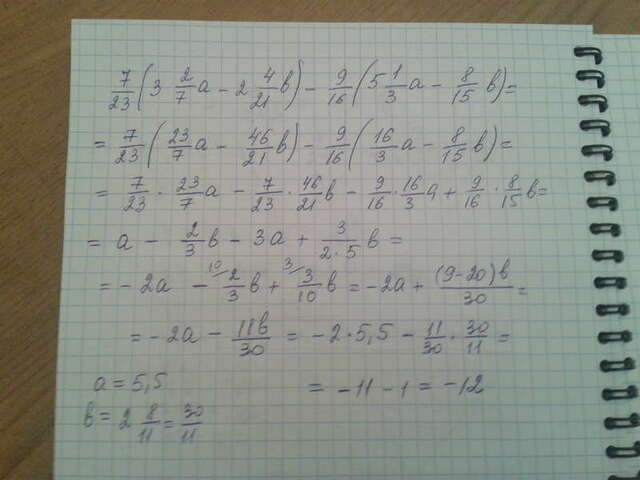 7/23 (3 2/7 a - 2 4/21 в) - 9/16 (5 1/3 a - 8/15 в) =
= 7/23 (23/7 a - 46/21 в) - 9/16 (16/3 a - 8/15 в) =
= 7/23 · 23/7 a - 7/23 · 46/21 в - 9/16 · 16/3 a + 9/16 · 8/15 в =
= a - 2/3 в - 3a + 3/(2·5) в =
= - 2a - 10/ 2/3 в + 3/ 3/10 в = -2a + (9-20)в/30 =
= -2a - 11в/30 = -2·5,5 - 11/30 · 30/11 =
a = 5,5 = -11 - 1 = -12
в = 2 8/11 = 30/11